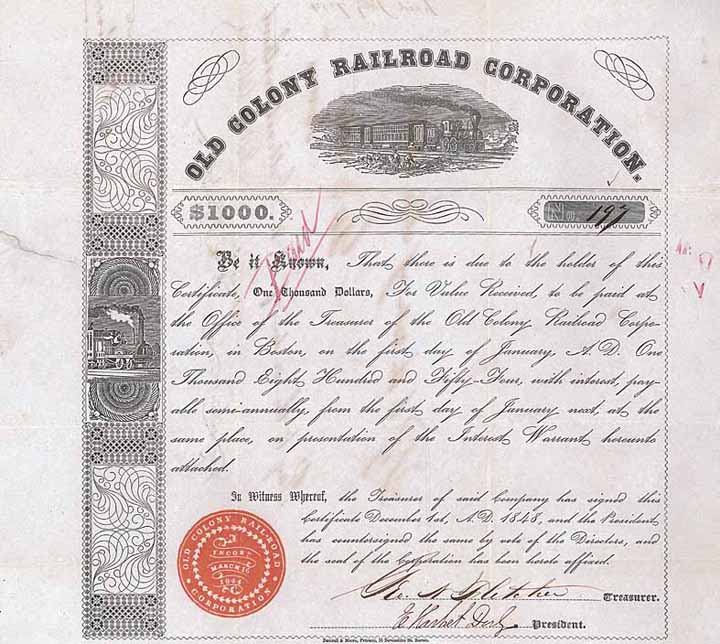 OLD COLONY RAILROAD CORPORATION.
$1000.
No 197
Paid
Be it Known, That there is due to the holder of this
Certificate, One Thousand Dollars, For Value Received, to be paid at
the Office of the Treasurer of the Old Colony Railroad Corpo-
ration, in Boston, on the first day of January, A.D. One
Thousand Eight Hundred and Fifty-Four, with interest, pay-
able semi-annually, from the first day of January next, at the
same place, on presentation of the Interest Warrant hereunto
attached.
In Witness Whereof, the Treasurer of said Company has signed this
Certificate December 1st, A.D. 1848, and the President
has countersigned the same by vote of the Directors, and
the seal of the Corporation has been hereto affixed.
OLD COLONY RAIL-ROAD
CORPORATION
INCORP.
MARCH 16
1844
Treasurer.
President.